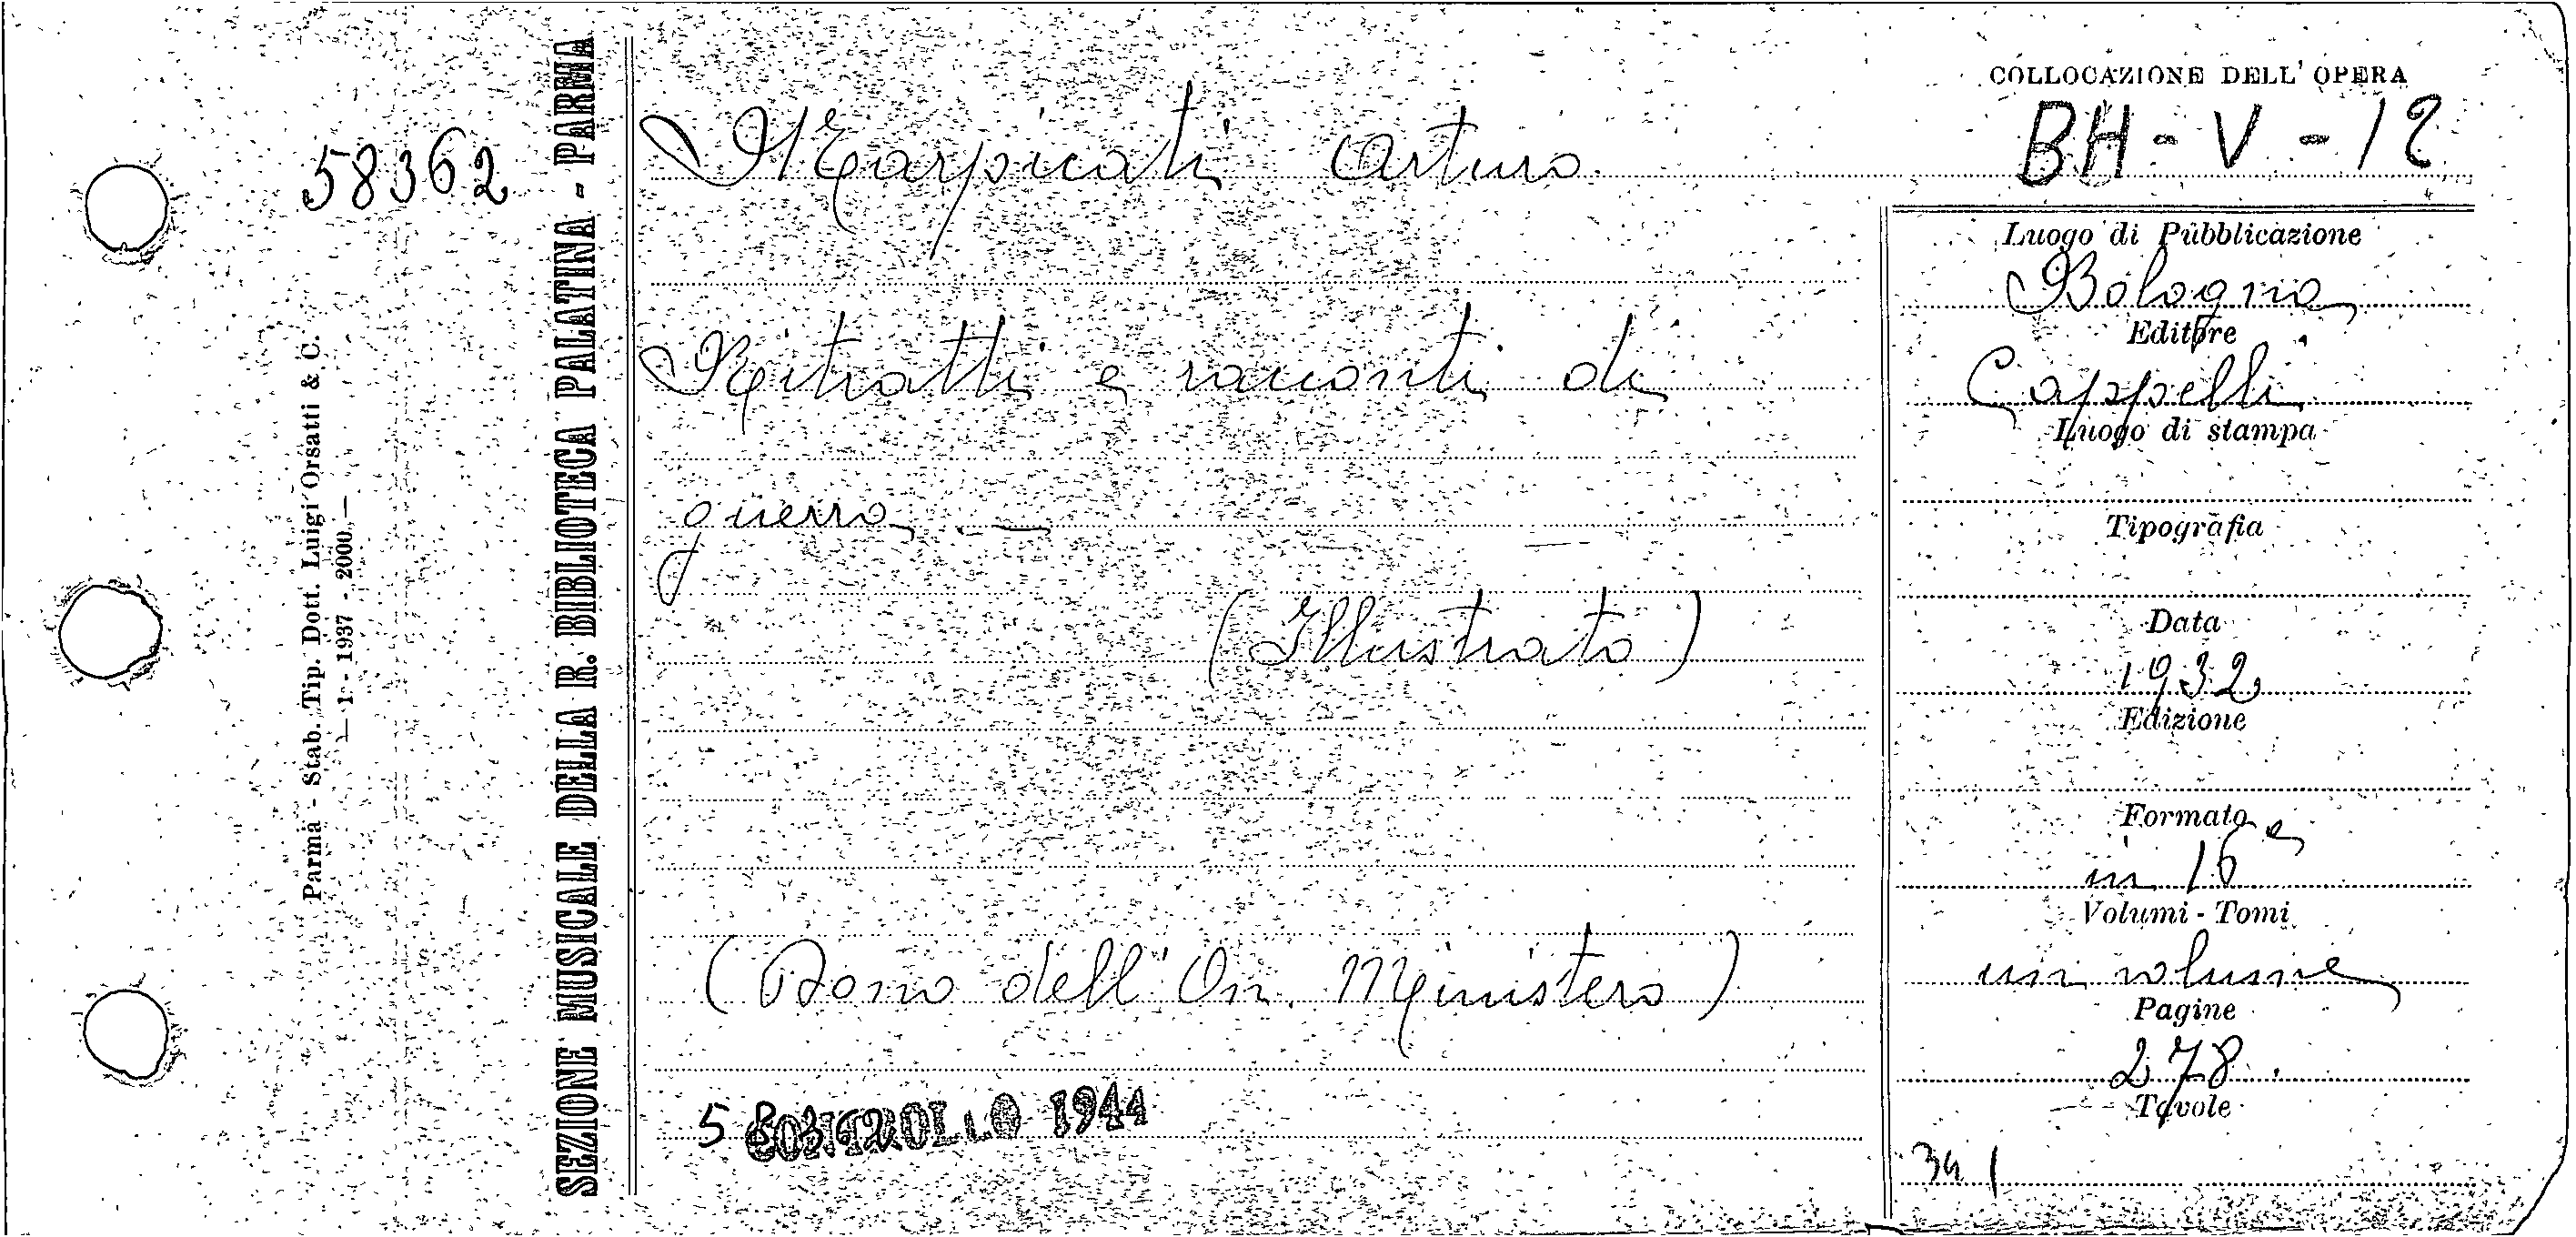 58362
Parma - Stab. Tip. Dott. Luigi Orsatti & C.
1 - 1937 - 2000.—
SEZIONE MUSICALE DELLA R. BIBLIOTECA PALATINA - PARMA
Marpicati Arturo
Ritratti e racconti di
guerra. —
(Illustrato)
(Dono dell'On. Ministero)
5 CONTROLLO 1944
COLLOCAZIONE DELL'OPERA
BH - V - 12
Luogo di Pubblicazione
Bologna
Editore
Cappelli
Luogo di stampa
Tipografia
Data
1932
Edizione
Formato
in 16°
Volumi - Tomi
un volume
Pagine
278.
Tavole